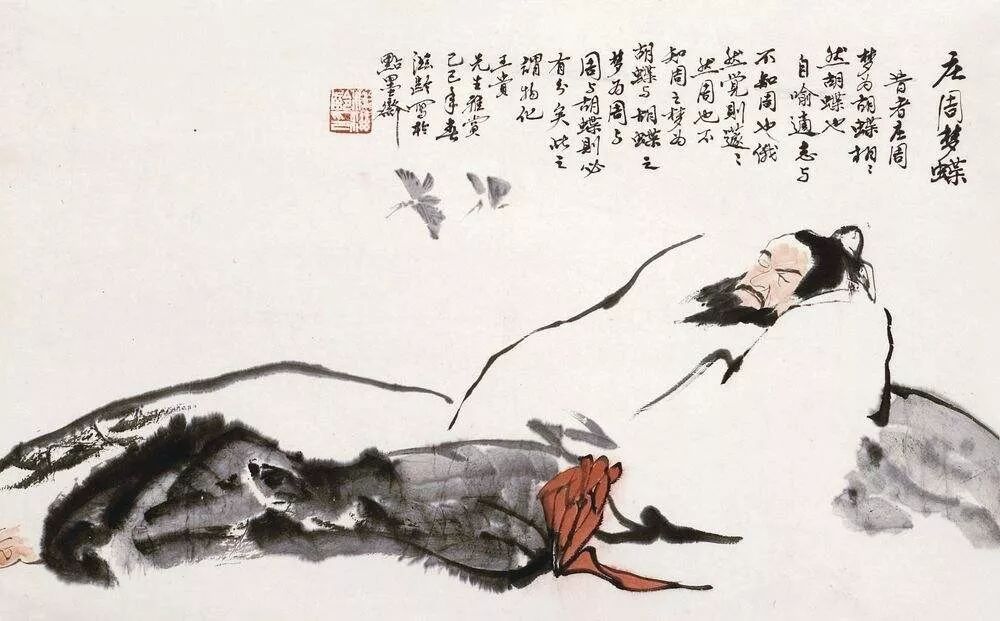 庄周梦蝶
昔者庄周
梦为胡蝶栩〻
然胡蝶也
自喻適志与
不知周也俄
然觉则蘧〻
然周也不
知周之梦为
胡蝶与胡蝶之
梦为周与
周与胡蝶则必
有分矣此之
谓物化
王贵
先生雅赏
己巳年春
瀛龄写於
點墨斋